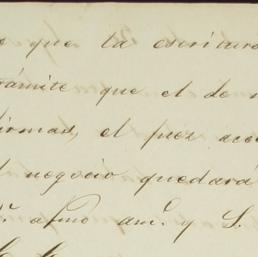 que la escritura
trámite que el de
firmas, el juez
negocio quedará
afmo am.º y S.